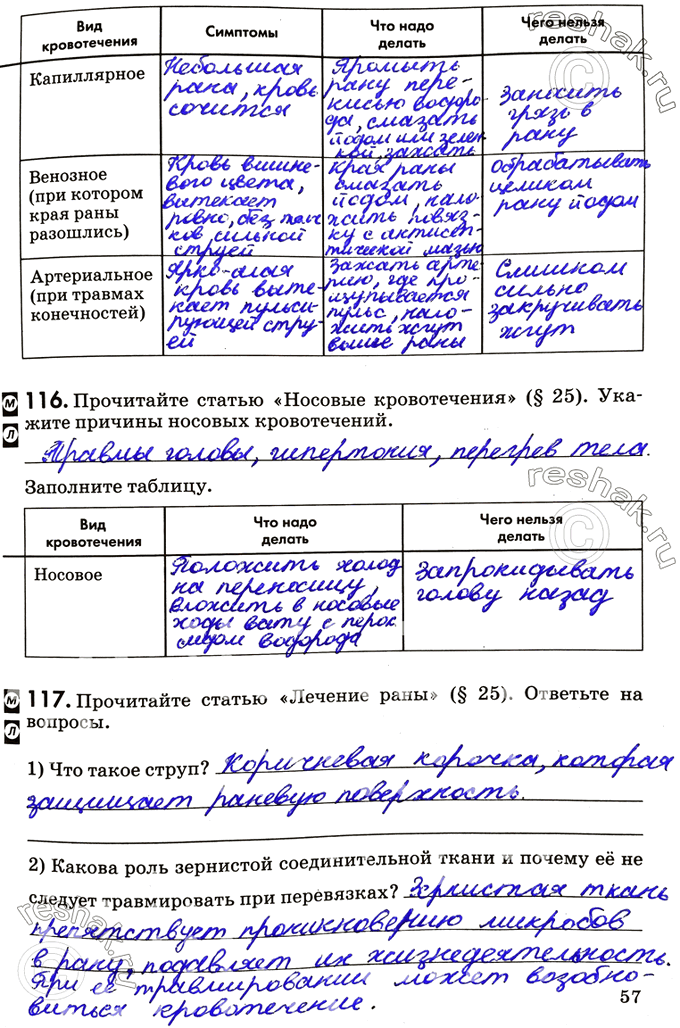 Вид кровотечения
Симптомы
Что надо делать
Чего нельзя делать
Капиллярное
Небольшая
рана, кровь
сочится
Промыть
рану пере-
кисью водоро-
да, смазать
йодом или зелен-
кой, зажать
Заносить
грязь в
рану
Венозное
(при котором
края раны
разошлись)
Кровь вишне-
вого цвета,
вытекает
ровно, без толч-
ков, сильной
струей
Края раны
смазать
йодом, нало-
жить повяз-
ку с антисеп-
тической мазью
Обрабатывать
целиком
рану йодом
Артериальное
(при травмах
конечностей)
Ярко-алая
кровь выте-
кает пульси-
рующей стру-
ей
Зажать арте-
рию, где про-
щупывается
пульс, нало-
жить жгут
выше раны
Слишком
сильно
закручивать
жгут
М
Л
116. Прочитайте статью «Носовые кровотечения» (§ 25). Ука-
жите причины носовых кровотечений.
Травмы головы, гипертония, перегрев тела.
Заполните таблицу.
Вид
кровотечения
Что надо
делать
Чего нельзя
делать
Носовое
Положить холод
на переносицу,
вложить в носовые
ходы вату с перок-
сидом водорода
Запрокидывать
голову назад
М
Л
117. Прочитайте статью «Лечение раны» (§ 25). Ответьте на
вопросы.
1) Что такое струп? Коричневая корочка, которая
защищает раневую поверхность.
2) Какова роль зернистой соединительной ткани и почему её не
следует травмировать при перевязках? Зернистая ткань
препятствует проникновению микробов
в рану, подавляет их жизнедеятельность.
При её травмировании может возобно-
виться кровотечение.
57
reshak.ru
reshak.ru
reshak.ru